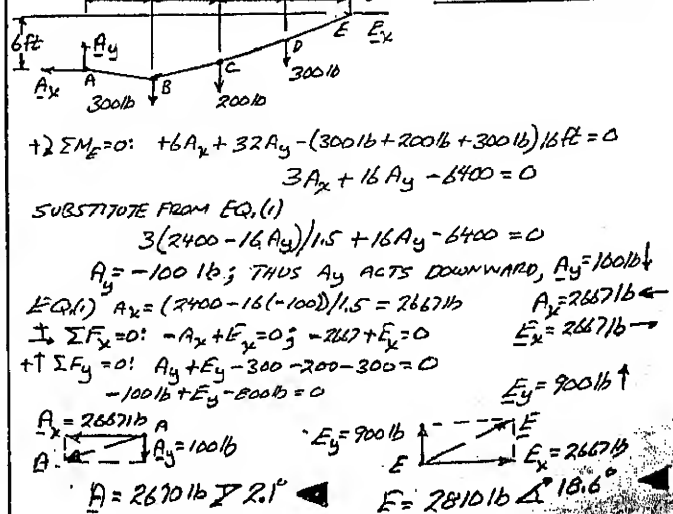 6ft
Ay
E Ex
Ax A B C D
300lb 200lb 300lb
+2 ΣM_E=0: +6Ax + 32Ay - (300lb + 200lb + 300lb)16ft = 0
3Ax + 16Ay - 6400 = 0
SUBSTITUTE FROM EQ.(1)
3(2400 - 16Ay)/1.5 + 16Ay - 6400 = 0
Ay = -100 lb; THUS Ay ACTS DOWNWARD, Ay = 100lb ↓
EQ.(1) Ax = (2400 - 16(-100))/1.5 = 2667lb Ax = 2667lb ←
+→ ΣFx = 0: -Ax + Ex = 0; -2667 + Ex = 0 Ex = 2667lb →
+↑ ΣFy = 0: Ay + Ey - 300 - 200 - 300 = 0
-100lb + Ey - 800lb = 0 Ey = 900lb ↑
Ax = 2667lb A
A Ay = 100lb
Ey = 900lb E
E Ex = 2667lb
A = 2670lb 2.1° ◀
E = 2810lb 18.6° ◀